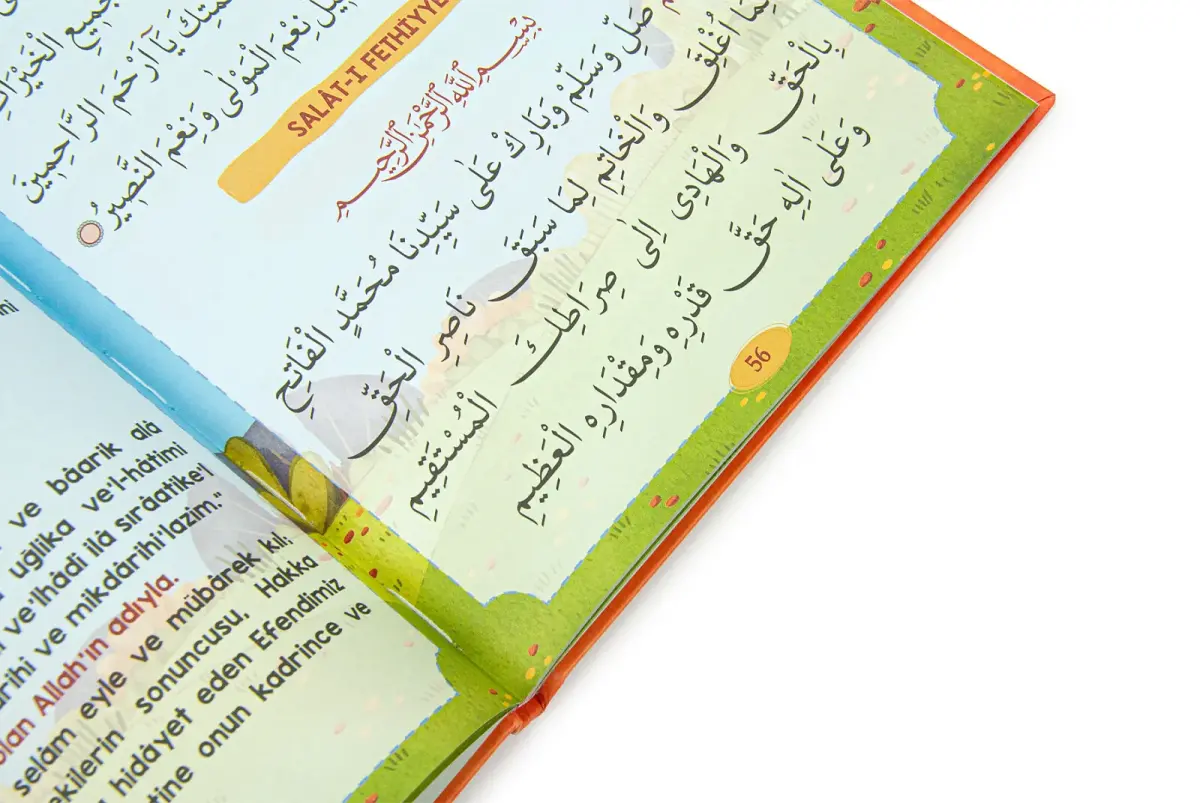 جَمِيعِ الْخَيْرَاتِ
يَآ اَرْحَمَ الرَّاحِمِينَ
نِعْمَ الْمَوْلٰى وَنِعْمَ النَّصِيرُ
SALÂT-I FETHİYYE
بِسْمِ اللّٰهِ الرَّحْمٰنِ الرَّحِيمِ
صَلِّ وَسَلِّمْ وَبَارِكْ عَلٰى سَيِّدِنَا مُحَمَّدٍ الْفَاتِحِ
اُغْلِقَ وَالْخَاتِمِ لِمَا سَبَقَ نَاصِرِ الْحَقِّ
بِالْحَقِّ وَالْهَادِى اِلٰى صِرَاطِكَ الْمُسْتَقِيمِ
وَعَلٰى اٰلِهِ حَقَّ قَدْرِهِ وَمِقْدَارِهِ الْعَظِيمِ
56
ve bàarik alà
uğlika ve'l-hàtimi
ve'lhàdi ilà sıràatike'l
ve mikdàrihi'lazim."
Allah'ın adıyla.
selàm eyle ve mübàrek kıl;
sonuncusu, Hakka
hidàyet eden Efendimiz
onun kadrince ve